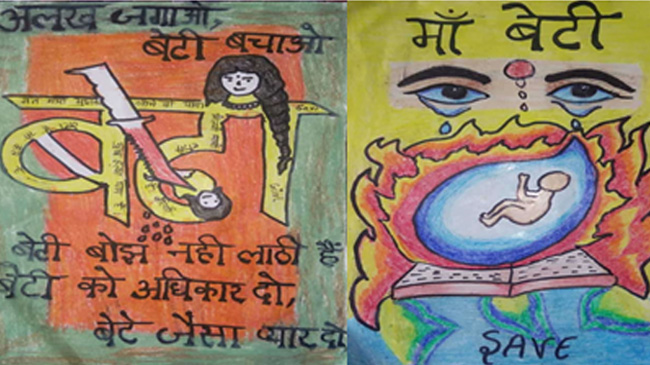 अलख जगाओ,
बेटी बचाओ
बेटी
बेटी बोझ नही लाठी हैं
बेटी को अधिकार दो,
बेटे जैसा प्यार दो
माँ बेटी
SAVE